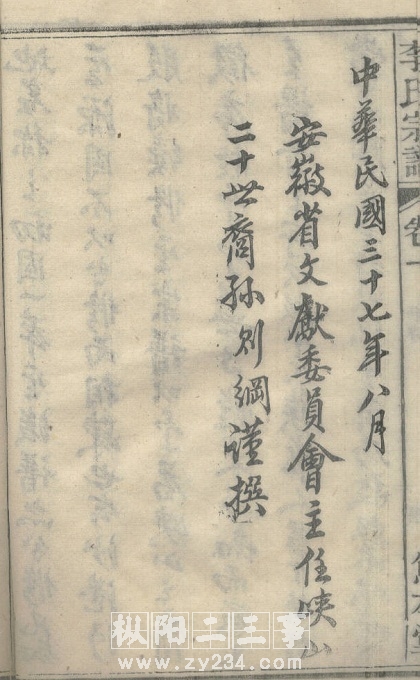 李氏宗譜
卷一
中華民國三十七年八月
安徽省文獻委員會主任峽山
二十世裔孫則綱謹撰
枞阳二三事
www.zy234.com